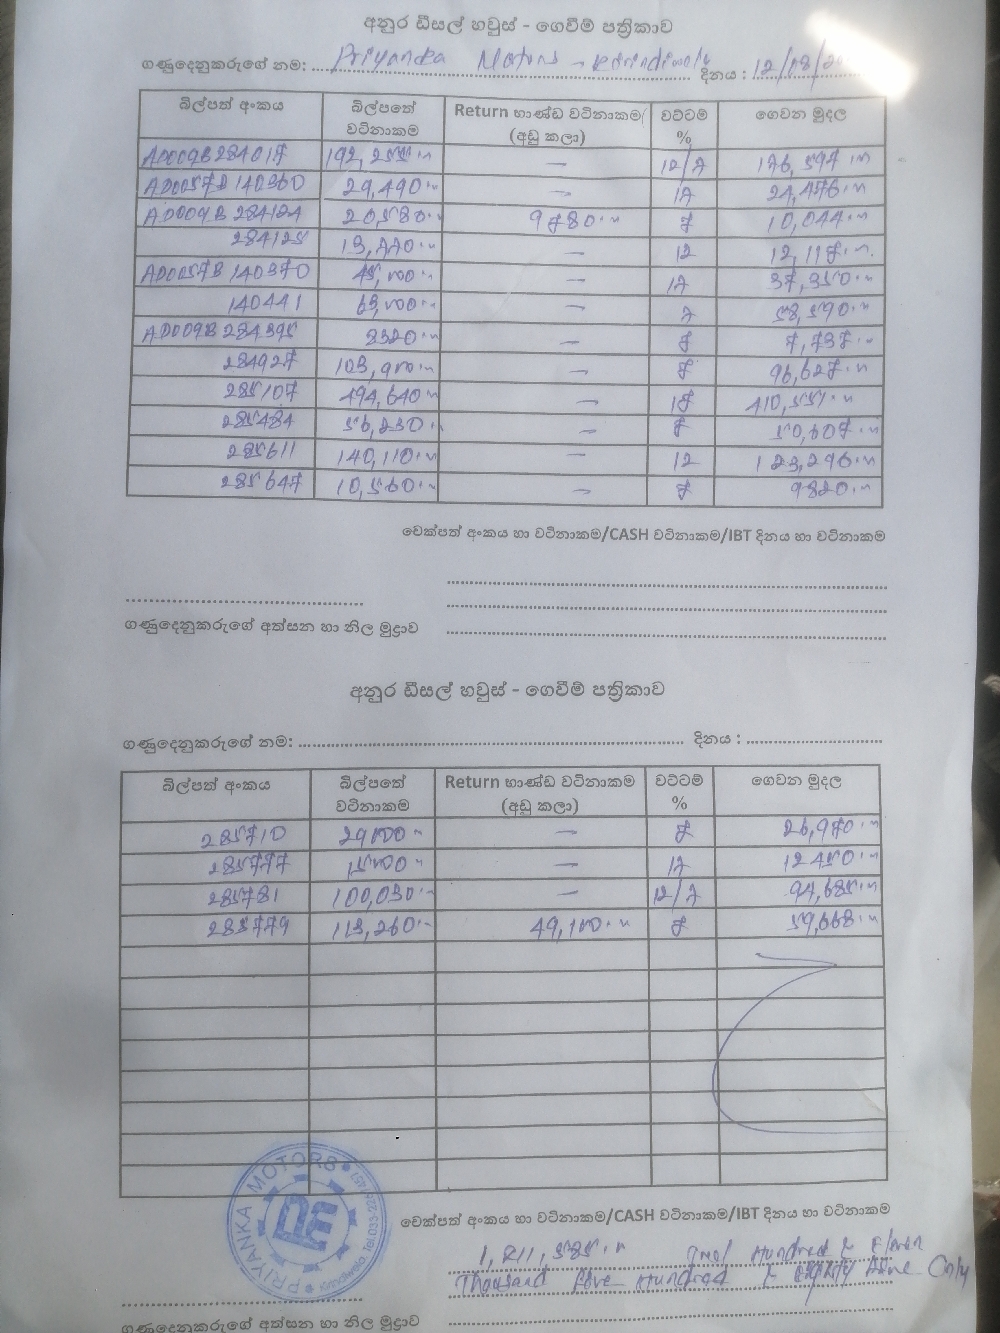 අනුර ඩීසල් හවුස් - ගෙවීම් පත්‍රිකාව
ගණුදෙනුකරුගේ නම: Priyanka Motors - දිනය : 12/08/20
බිල්පත් අංකය බිල්පතේ වටිනාකම Return භාණ්ඩ වටිනාකම/ (අඩු කලා) වට්ටම් % ගෙවන මුදල
AD009B284017 — 12/7 176,597
29,490 — 17 24,476
AD009B 20,580 9780 7 10,044
284125 — 12
140370 — 17 37,350
140441 — 7 58,590
AD009B 284395 8320 — 7 7,737
284927 — 7 96,627
285107 494,640 — 17 410,551
285484 — 7 50,607
285611 140,110 — 12 123,296
285647 10,560 — 7 9820
චෙක්පත් අංකය හා වටිනාකම/CASH වටිනාකම/IBT දිනය හා වටිනාකම
ගණුදෙනුකරුගේ අත්සන හා නිල මුද්‍රාව
අනුර ඩීසල් හවුස් - ගෙවීම් පත්‍රිකාව
ගණුදෙනුකරුගේ නම: දිනය :
බිල්පත් අංකය බිල්පතේ වටිනාකම Return භාණ්ඩ වටිනාකම (අඩු කලා) වට්ටම් % ගෙවන මුදල
285710 29000 — 7 26,970
285777 15000 — 17 12450
285781 100,030 — 12/7 94,685
285779 113,260 49,100 7 59,668
PRIYANKA MOTORS
චෙක්පත් අංකය හා වටිනාකම/CASH වටිනාකම/IBT දිනය හා වටිනාකම
1,211,585 Hundred & Eleven
Thousand Five Hundred & Eighty Five Only
ගණුදෙනුකරුගේ අත්සන හා නිල මුද්‍රාව